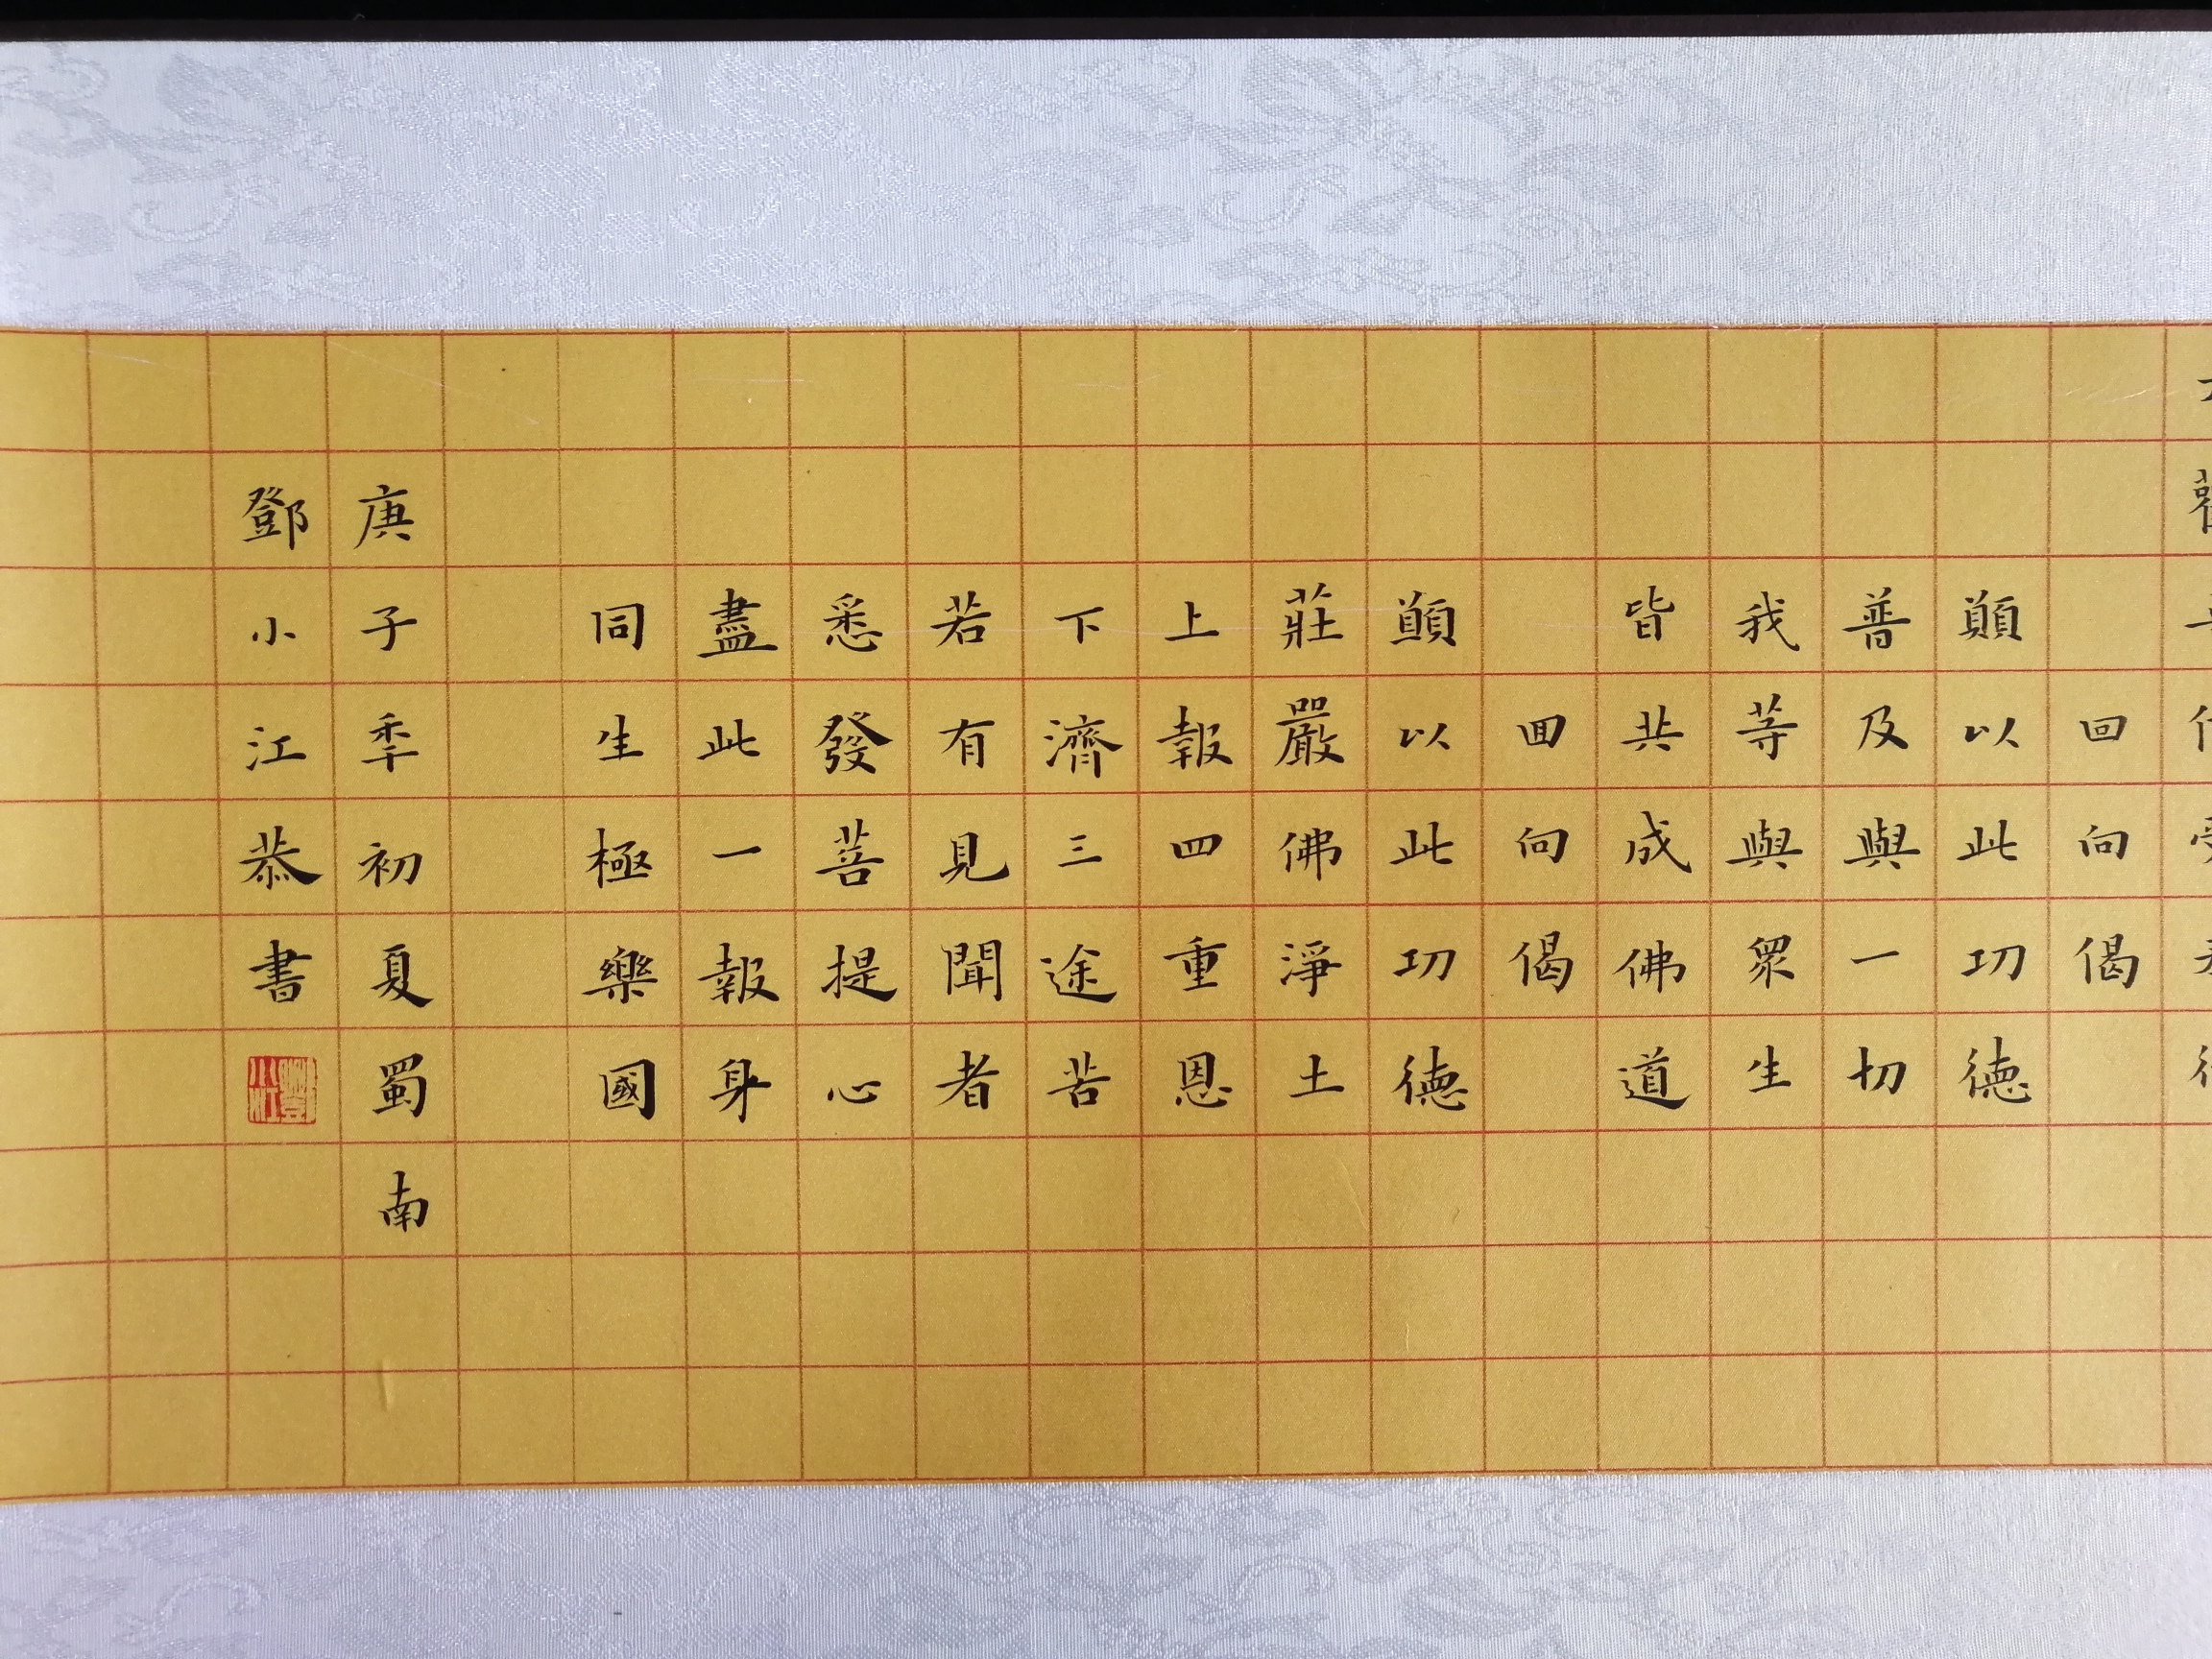 回向偈
願以此功德
普及與一切
我等與眾生
皆共成佛道
回向偈
願以此功德
莊嚴佛淨土
上報四重恩
下濟三途苦
若有見聞者
悉發菩提心
盡此一報身
同生極樂國
庚子年初夏蜀南
鄧小江恭書